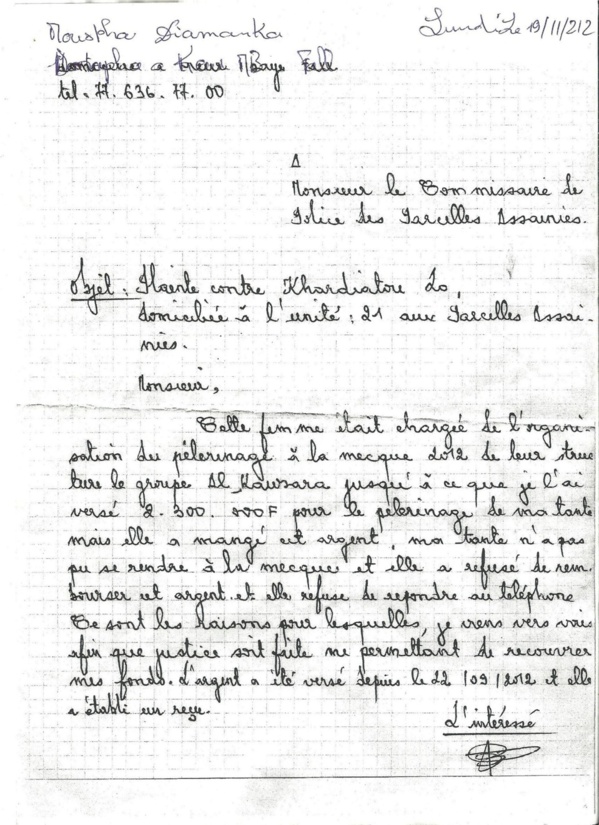 Moustpha Diamanka
Lundi Le 19/11/212
a Keur Mbaye Fall
tel. 77. 636. 77. 00
A
Monsieur le Commissaire de
Police des Parcelles Assainies.
Objet : Plainte contre Khardiatou Lo,
domiciliée à l'unité : 21 aux Parcelles Assai-
nies.
Monsieur,
Cette femme était chargée de l'organi-
sation du pélerinage à la mecque 2012 de leur struc
ture le groupe Al_Kawsara jusqu'à ce que je l'ai
versé 2.300.000F pour le pélerinage de ma tante
mais elle a mangé cet argent, ma tante n'a pas
pu se rendre à la mecque et elle a refusé de rem.
bourser cet argent et elle refuse de repondre au téléphone
Ce sont les raisons pour lesquelles, je viens vers vous
afin que justice soit faite me permettant de recouvrer
mes fonds. L'argent a été versé depuis le 22/09/2012 et elle
a établi un reçu.
L'intéressé